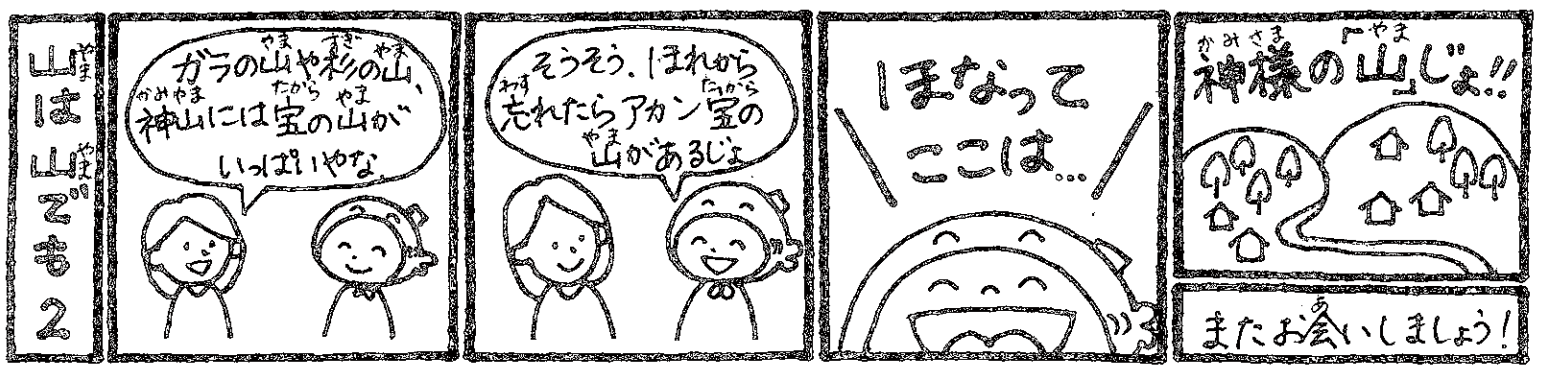 山は山でも2
ガラの山や杉の山、
神山には宝の山が
いっぱいやな
そうそう、ほれから
忘れたらアカン宝の
山があるじょ
ほなって
ここは…
神様の「山」じょ!!
またお会いしましょう!